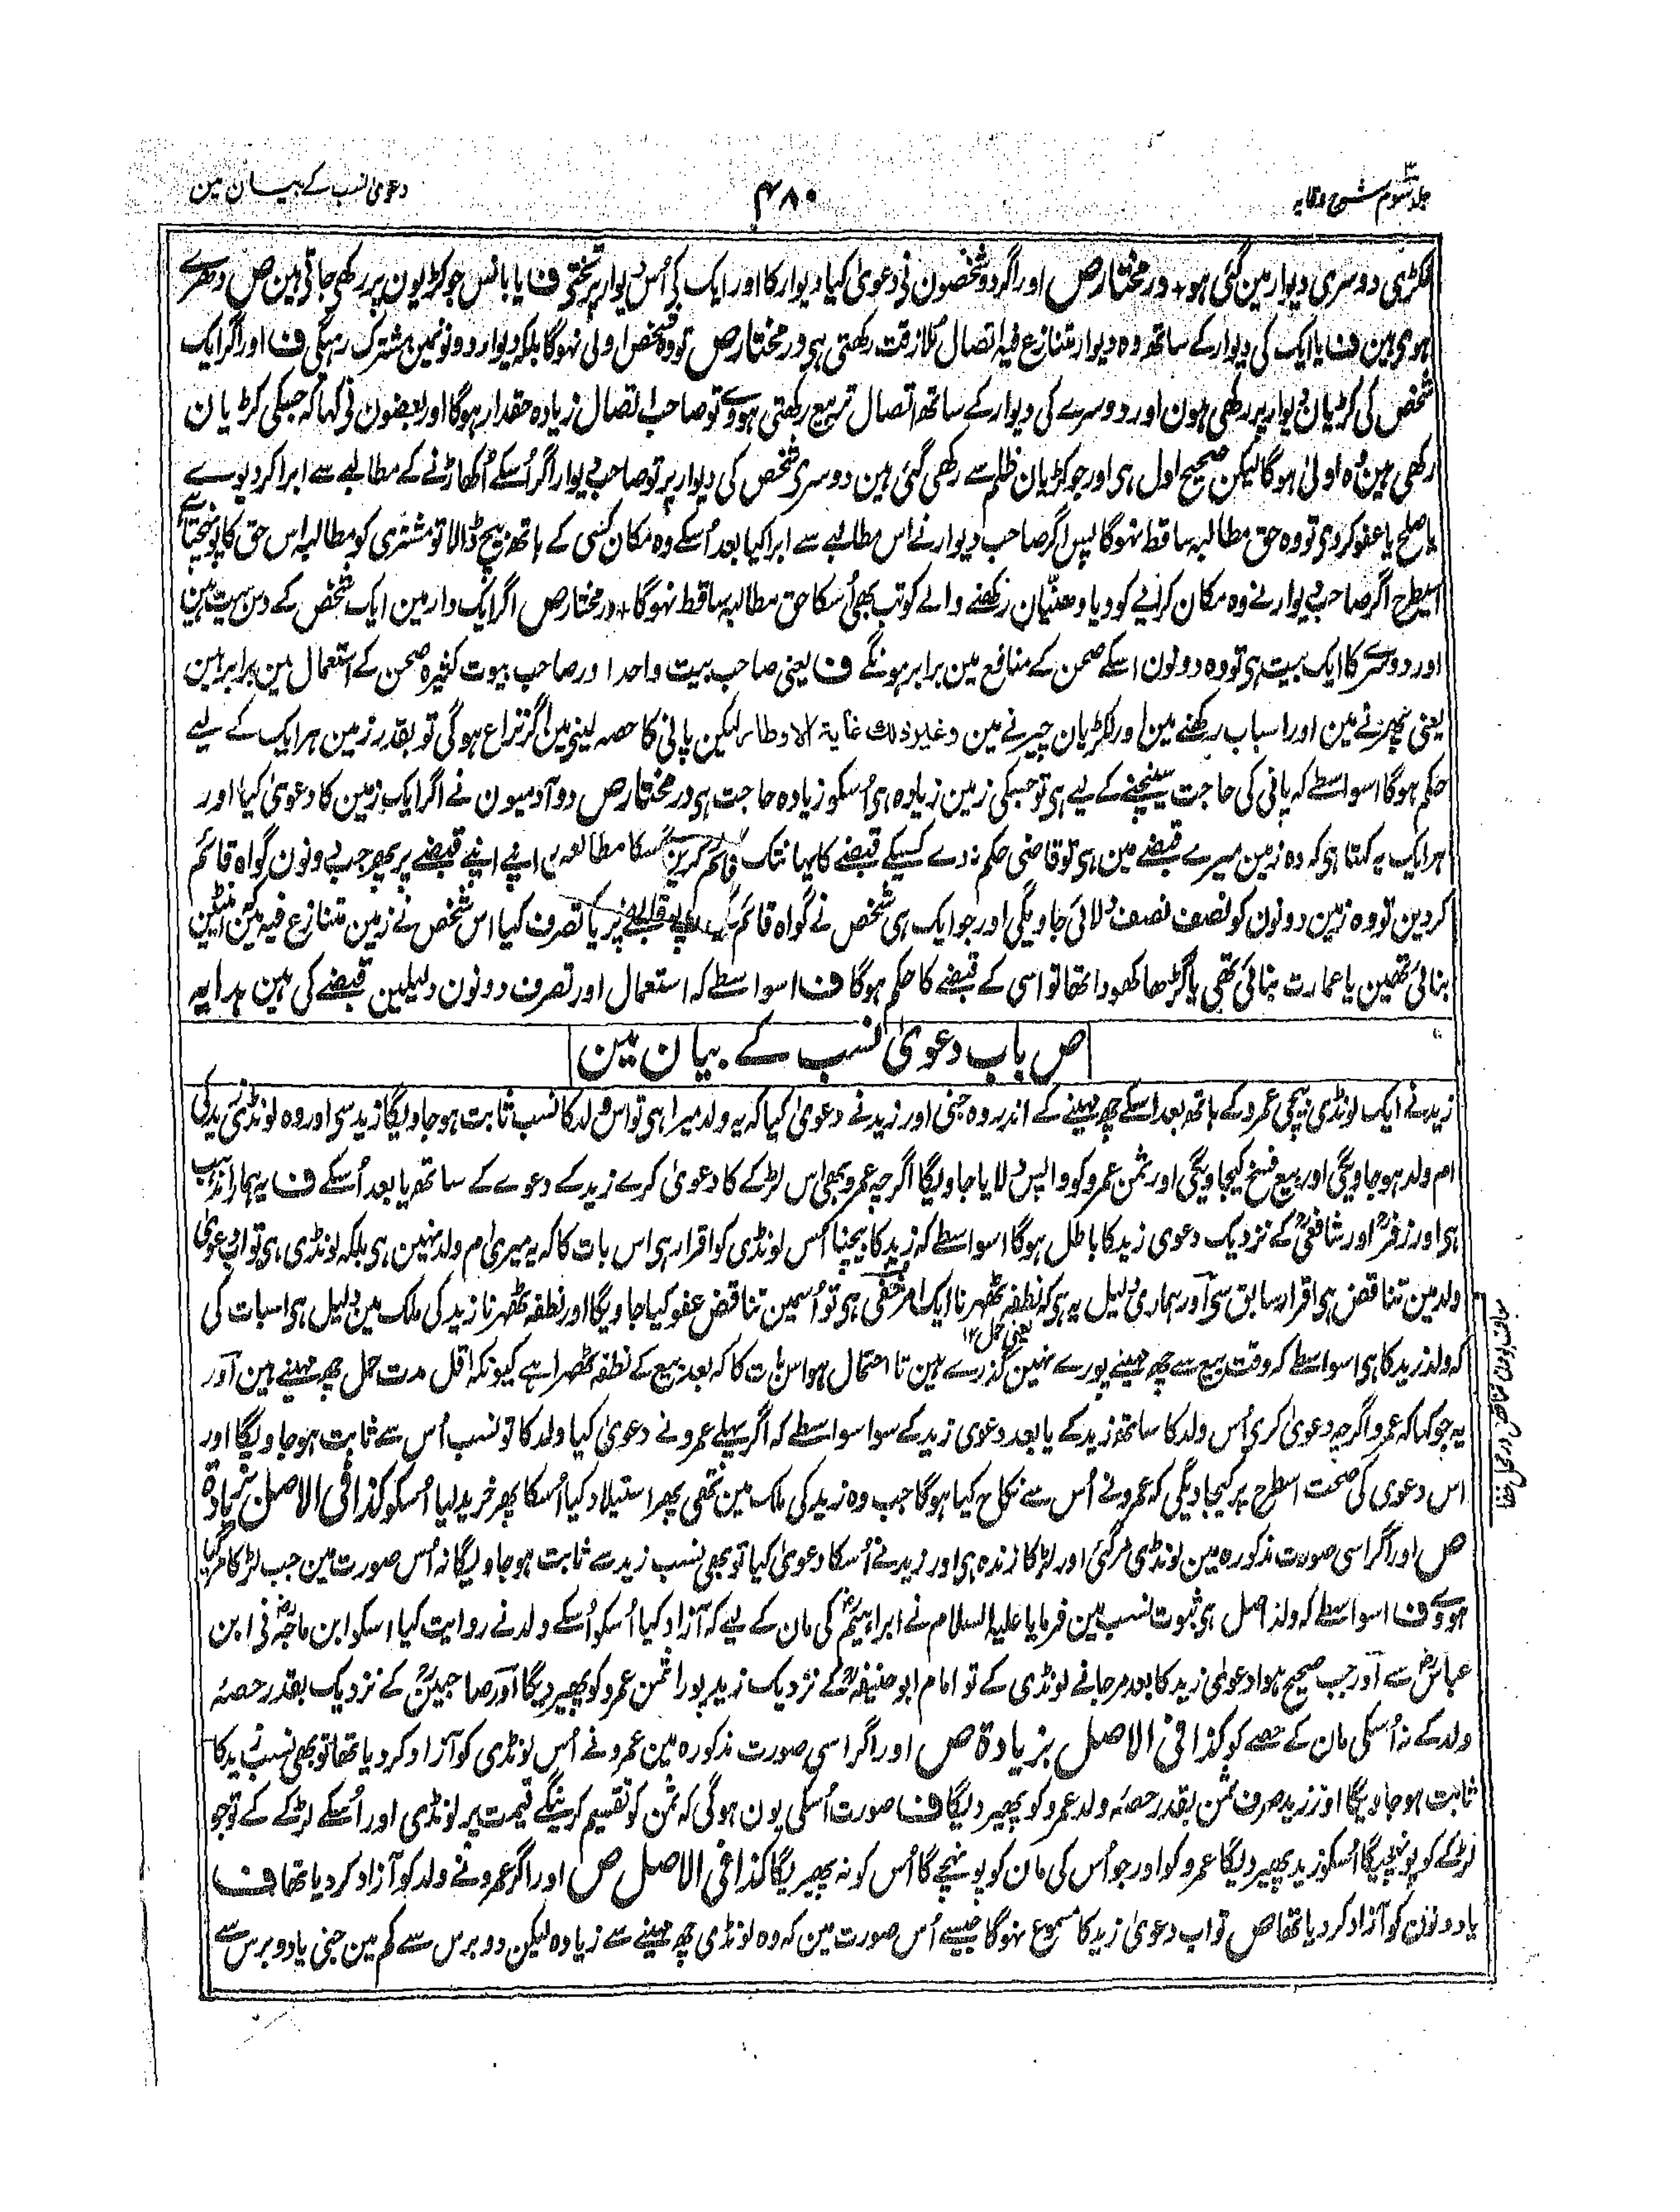 جلد سوم شرح وقایہ
۴۸۰
دعویٰ نسب کے بیان مین
لکڑی دوسری دیوار مین گئی ہو + در مختار ص اور اگر دو شخصون نی دعویٰ کیا دیوار کا اور ایک کی اُس دیوار پر تختی ف یا بانس جو کڑیون پر رکھی جاتی ہین ص دھرے
ہوی ہین ف یا ایک کی دیوار کے ساتھ وہ دیوار متنازع فیہ اتصال ملازقت رکھتی ہی در مختار ص تو وہ شخص اولی نہوگا بلکہ دیوار دونونمین مشترک رہیگی ف اور اگر ایک
شخص کی کڑیان دیوار پر رکھی ہون اور دوسرے کی دیوار کے ساتھ اتصال تربیع رکھتی ہووے تو صاحب اتصال زیادہ حقدار ہوگا اور بعضون نی کہا کہ جسکی کڑیان
رکھی ہین وہ اولیٰ ہوگا لیکن صحیح اول ہی اور جو کڑیان ظلم سے رکھی گئی ہین دوسری شخص کی دیوار پر تو صاحب دیوار اگر اُسکے اُکھاڑنے کے مطالبے سے ابرا کر دیوے
یا صلح یا عفو کر دی تو وہ حق مطالبہ ساقط نہوگا پس اگر صاحب دیوار نے اس مطالبے سے ابرا کیا بعد اُسکے وہ مکان کسی کے ہاتھ بیچ ڈالا تو مشتری کو مطالبہ اس حق کا پونہچتا ہے
اسیطرح اگر صاحب دیوار نے وہ مکان کرایے کو دیا دھنیان رکھنے والے کو تب بھی اُسکا حق مطالبہ ساقط نہوگا + در مختار ص اگر ایک دار مین ایک شخص کے دس بیت ہین
اور دوسرے کا ایک بیت ہی تو وہ دونون اسکے صحن کے منافع مین برابر ہونگے ف یعنی صاحب بیت واحد اور صاحب بیوت کثیرہ صحن کے استعمال مین برابر ہین
یعنی پھرنے مین اور اسباب رکھنے مین اور لکڑیان چیرنے مین وغیر ذلک غایۃ الاوطار لیکن پانی کا حصہ لینی مین اگر نزاع ہوگی تو بقدر زمین ہر ایک کے لیے
حکم ہوگا اسواسطے کہ پانی کی حاجت سینچنے کے لیے ہی تو جسکی زمین زیادہ ہی اُسکو زیادہ حاجت ہی در مختار ص دو آدمیون نے اگر ایک زمین کا دعویٰ کیا اور
ہر ایک یہ کہتا ہی کہ وہ زمین میرے قبضے مین ہی تو قاضی حکم نہ دے کسیکے قبضے کا یہانتک قائم کرین اپنے اپنے قبضے پر پھر جب دونون گواہ قائم
کردین تو وہ زمین دونون کو نصف نصف دلائی جاویگی اور جو ایک ہی شخص نے گواہ قائم قبضے پر یا تصرف کیا اس شخص نے زمین متنازع فیہ مین اینٹین
بنائی تھین یا عمارت بنائی تھی یا گڑھا کھودا تھا تو اسی کے قبضے کا حکم ہوگا ف اسواسطے کہ استعمال اور تصرف دونون دلیلین قبضے کی ہین ہدایہ
ص باب دعویٰ نسب کے بیان مین
زید نے ایک لونڈی بیچی عمرو کے ہاتھ بعد اسکے چھ مہینے کے اندر وہ جنی اور زید نے دعویٰ کیا کہ یہ ولد میرا ہی تو اس ولد کا نسب ثابت ہو جاویگا زید سی اور وہ لونڈی زید کی
ام ولد ہو جاویگی اور بیع فسخ کیجاویگی اور ثمن عمرو کو واپس دلایا جاویگا اگرچہ عمرو بھی اس لڑکے کا دعویٰ کرے زید کے دعوے کے ساتھ یا بعد اُسکے ف یہ ہمارا مذہب
ہی اور زفرؒ اور شافعیؒ کے نزدیک دعوی زید کا باطل ہوگا اسواسطے کہ زید کا بیچنا اُس لونڈی کو اقرار ہی اس بات کا کہ یہ میری ام ولد نہین ہی بلکہ لونڈی ہی تو اب دعویٰ
ولد مین تناقض ہی اقرار سابق سی اور ہماری دلیل یہ ہی کہ نطفہ ٹھہرنا ایک امر خفی ہی تو اُسمین تناقض عفو کیا جاویگا اور نطفہ ٹھہرنا زید کی ملک مین دلیل ہی اسبات کی
یعنی حمل ۱۲
کہ ولد زید کا ہی اسواسطے کہ وقت بیع سے چھ مہینے پورے نہین گذرے ہین تا احتمال ہو اس بات کا کہ بعد بیع کے نطفہ ٹھہرا ہے کیونکہ اقل مدت حمل چھ مہینے ہین اور
یہ جو کہا کہ عمرو اگرچہ دعویٰ کری اُس ولد کا ساتھ زید کے یا بعد دعوی زید کے سو اسواسطے کہ اگر پہلے عمرو نے دعویٰ کیا ولد کا تو نسب اُس سے ثابت ہو جاویگا اور
اس دعوی کی صحت اسطرح پر کیجاویگی کہ عمرو نے اُس سے نکاح کیا ہوگا جب وہ زید کی ملک مین تھی پھر استیلاد کیا اُسکا پھر خرید لیا اُسکو کذا فی الاصل بزیادۃ
ص اور اگر اسی صورت مذکورہ مین لونڈی مر گئی اور لڑکا زندہ ہی اور زید نے اُسکا دعویٰ کیا تو بھی نسب زید سے ثابت ہو جاویگا نہ اُس صورت مین جب لڑکا مر گیا
ہووے ف اسواسطے کہ ولد اصل ہی ثبوت نسب مین فرمایا علیہ السلام نے ابراہیمؓ کی مان کے لیے کہ آزاد کیا اُسکو اُسکے ولد نے روایت کیا اسکو ابن ماجہؒ نی ابن
عباسؓ سے اور جب صحیح ہوا دعویٰ زید کا بعد مر جانے لونڈی کے تو امام ابو حنیفہؒ کے نزدیک زید پورا ثمن عمرو کو پھیر دیگا اور صاحبینؒ کے نزدیک بقدر حصہ
ولد کے نہ اُسکی مان کے حصے کو کذا فی الاصل بزیادۃ ص اور اگر اسی صورت مذکورہ مین عمرو نے اُس لونڈی کو آزاد کر دیا تھا تو بھی نسب زید کا
ثابت ہو جاویگا اور زید صرف ثمن بقدر حصہ ولد عمرو کو پھیر دیگا ف صورت اُسکی یون ہوگی کہ ثمن کو تقسیم کرینگے قیمت پر لونڈی اور اُسکے لڑکے کے تو جو
لڑکے کو پونہچیگا اُسکو زید پھیر دیگا عمرو کو اور جو اُس کی مان کو پونہچے گا اُس کو نہ پھیریگا کذا فی الاصل ص اور اگر عمرو نے ولد کو آزاد کر دیا تھا ف
یا دونون کو آزاد کر دیا تھا ص تو اب دعویٰ زید کا مسموع نہوگا جیسے اُس صورت مین کہ وہ لونڈی چھ مہینے سے زیادہ لیکن دو برس سے کم مین جنی یا دو برس سے